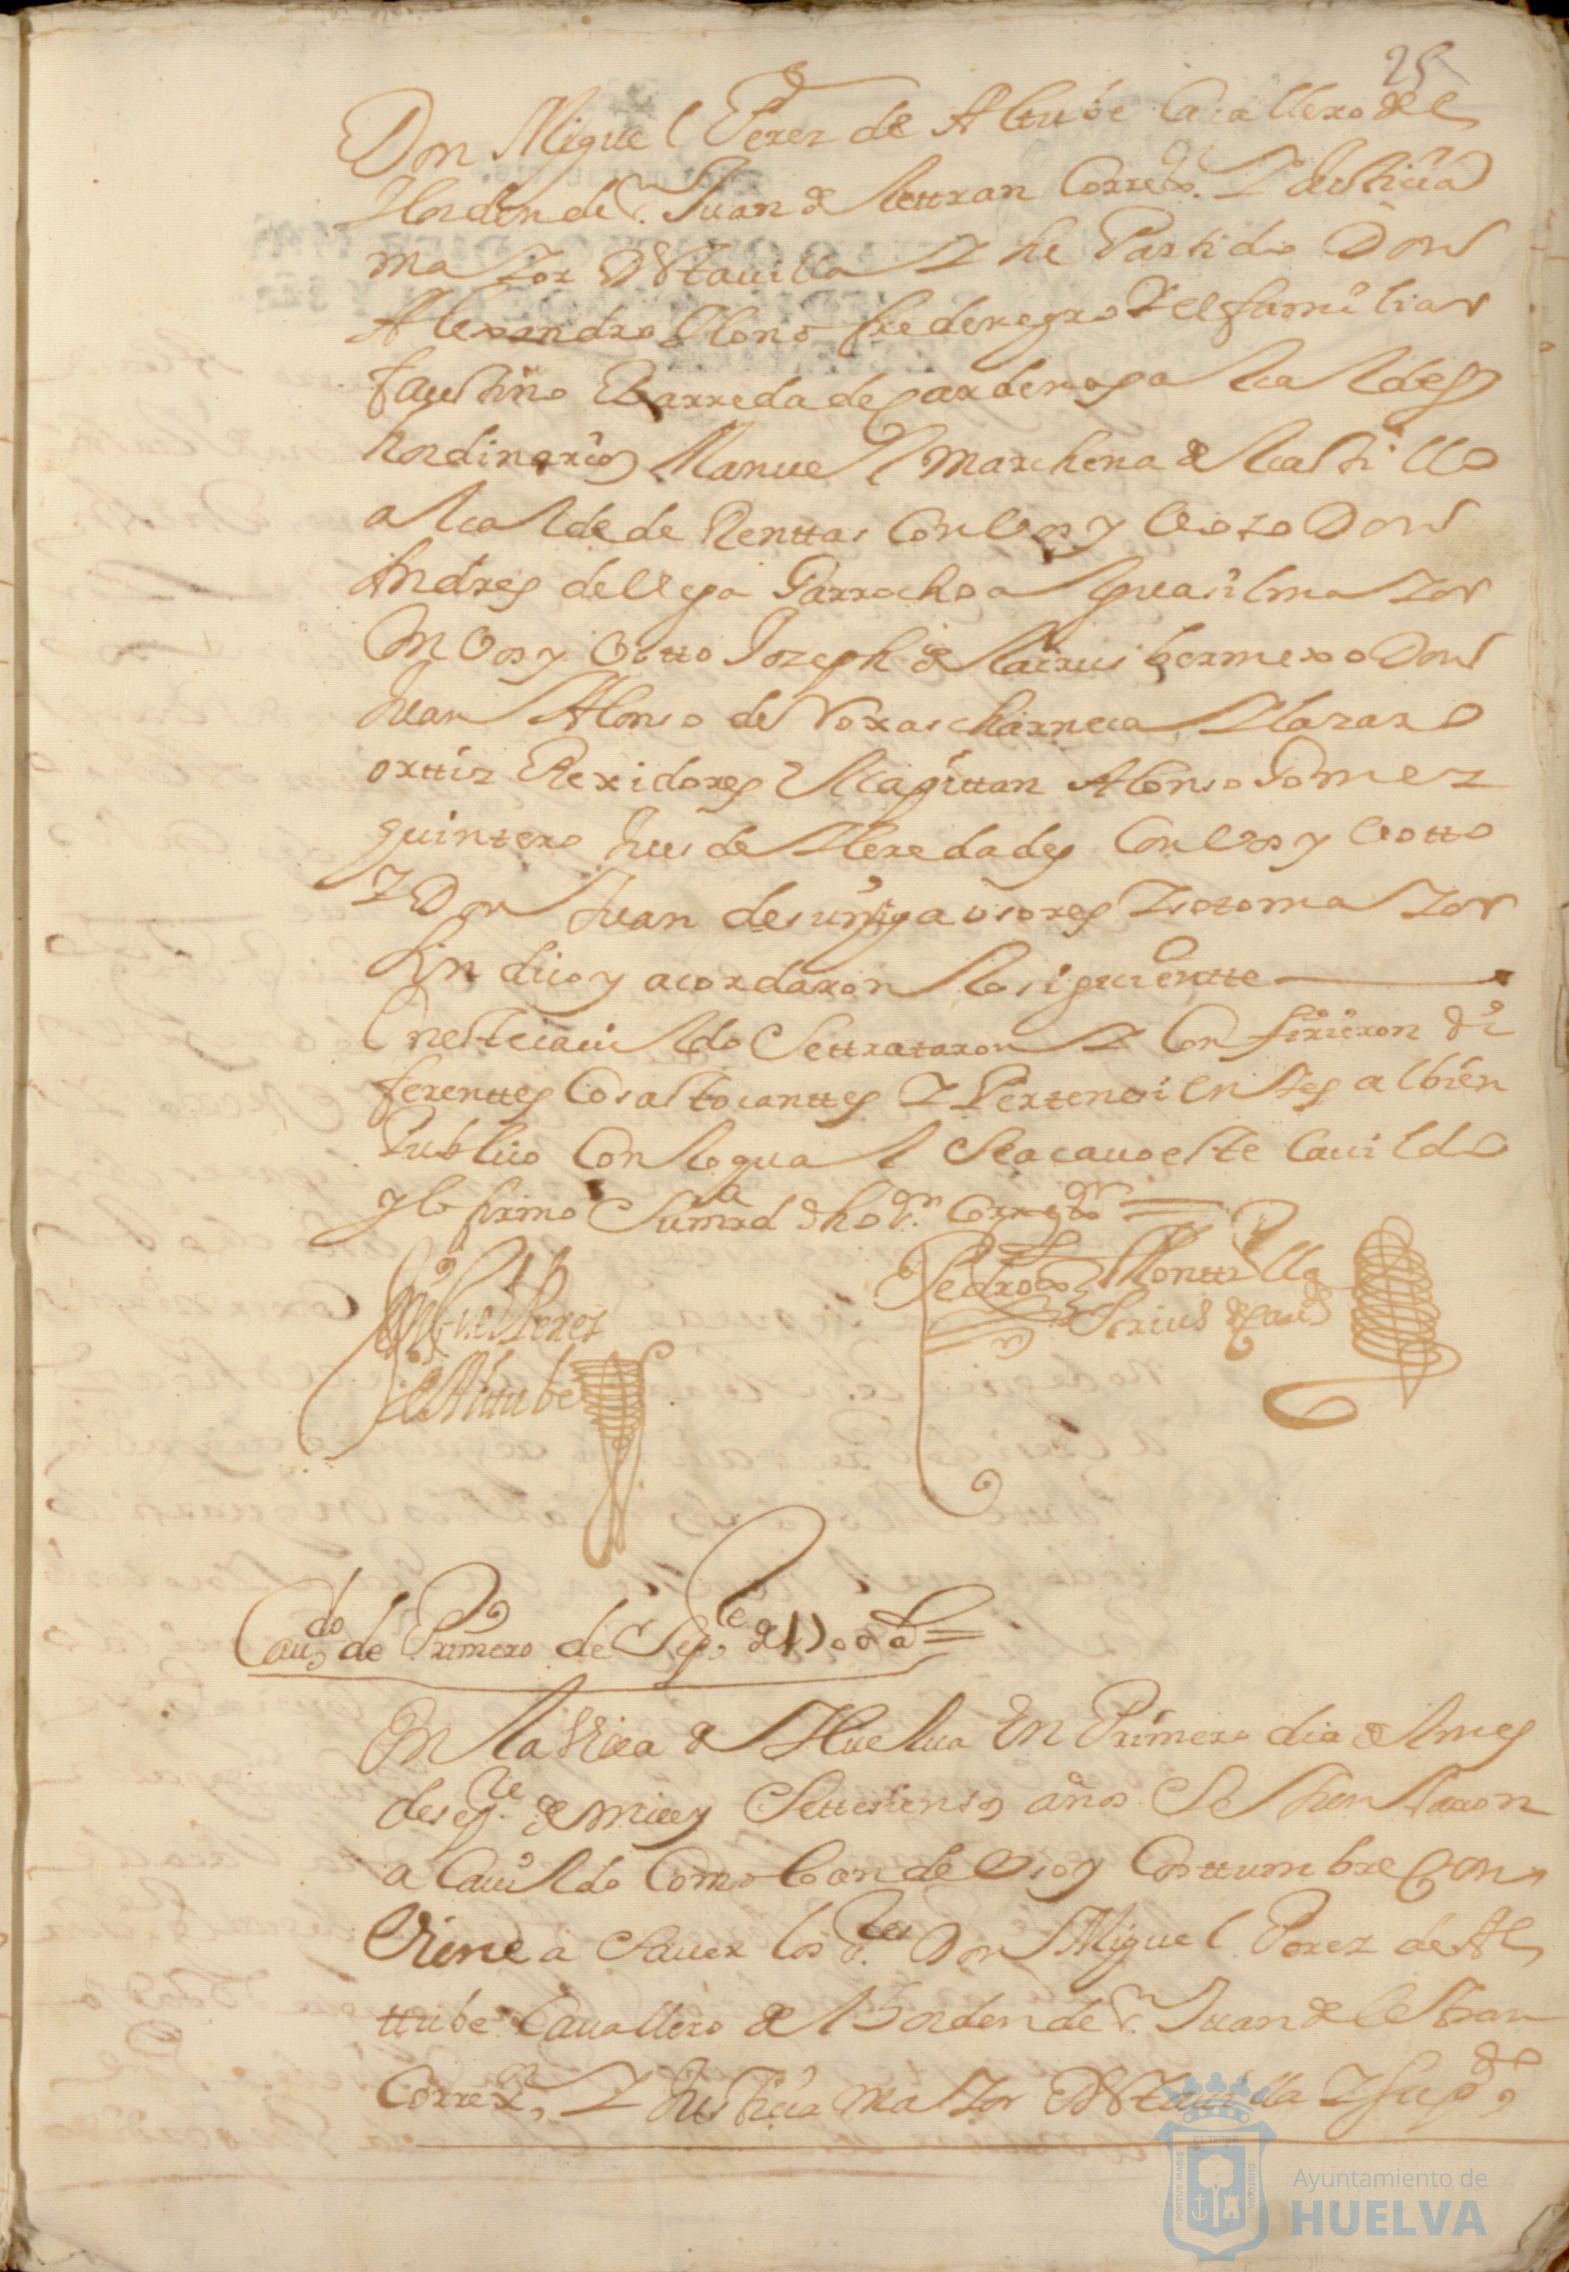 25
Don Miguel Perez de Altube Cauallero del
Horden de Sn. Juan de lettran Corredor. Y Justicia
mayor Desta uilla Y he Partido Don
Alexandro Olono frederegro Y el familiar
faustino Barreda de cardenas alcaldes
hordinarios Manuel marchena del Castillo
alcalde de Renttas Con Vos y Voto Don
Andres de Vega Garrocho alguacil mayor
en Vos y Votto Joseph de larrus bermexo Don
Juan Alonso de Roxas charneca Y lazaro
orttiz Rexidores Y el capittan Alonso Gomez
quintero Jues de Heredades Con Vos y Votto
Y Don Juan de suniga osores Y sotomayor
Sindico y acordaron lo siguientte
En este cauildo Se ttrataron Y Confirieron di
ferenttes Cosas tocanttes Y Pertenecientes al bien
Publico Con lo qual Se acauo este Cauildo
y lo firmo Su mrd dho Sr. Corregdor
Miguel Perez
de Alttube
Pedro Monttilla
Scriuo de cauo
Caudo de Primero de Sepe de 1700 as
En la Villa de Huelua En Primero dia del mes
de sepre. de mill y Settesientos años Se Juntaron
a Cauildo Como lo an de Vso y Costtumbre Con
Viene a Sauer los Sres Don Miguel Perez de Al
ttube Cauallero del horden de Sn. Juan de lettran
Correxor Y Justicia mayor Desta uilla Y su pdo
PORTUS MARIS
ET TERRAE
CUSTODIA
Ayuntamiento de
HUELVA